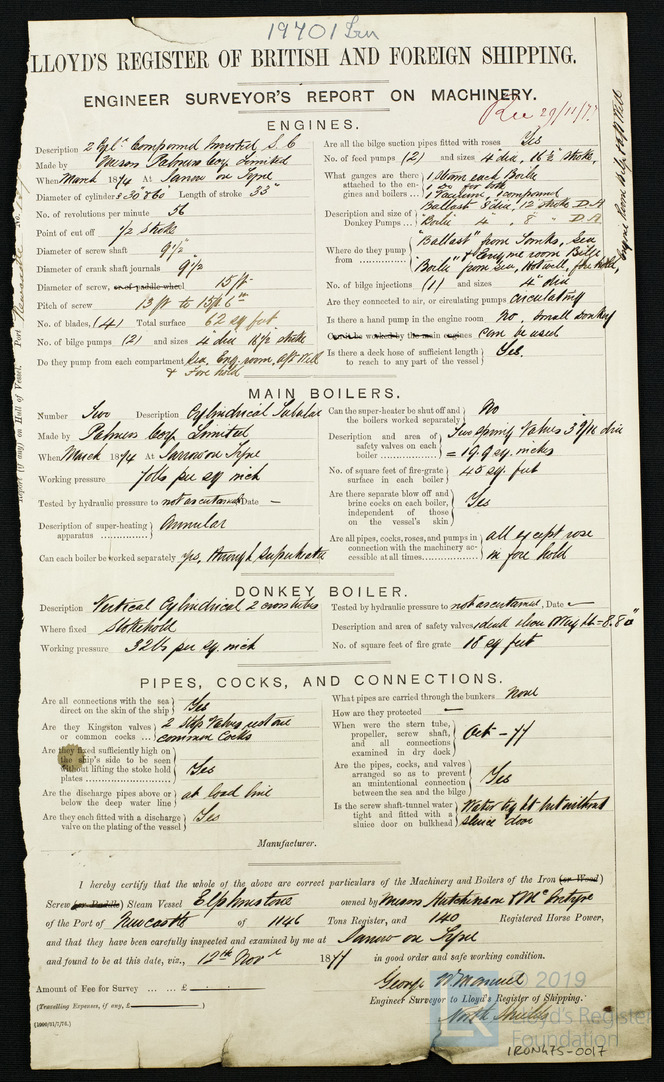 19701 Iron
LLOYD'S REGISTER OF BRITISH AND FOREIGN SHIPPING.
ENGINEER SURVEYOR'S REPORT ON MACHINERY.
Rec 29/11/77
ENGINES.
Description 2 Cyl. Compound Inverted S. C
Made by Messrs Palmers Coy Limited
When March 1874 At Jarrow on Tyne
Diameter of cylinders 30" & 60" Length of stroke 33"
No. of revolutions per minute 56
Point of cut off 1/2 stroke
Diameter of screw shaft 9 1/2
Diameter of crank shaft journals 9 1/2
Diameter of screw, or of paddle wheel 15 ft
Pitch of screw 13 ft to 15 ft 6 in
No. of blades, (4) Total surface 62 sq feet
No. of bilge pumps (2) and sizes 4" dia 16 1/2 stroke
Do they pump from each compartment Sea, Eng. room, Aft Well
& Fore hold
Are all the bilge suction pipes fitted with roses Yes
No. of feed pumps (2) and sizes 4" dia, 16 1/2 stroke,
What gauges are there attached to the engines and boilers ... 1 Steam each Boiler
1 Do for both
1 Vacuum, 1 compound
Description and size of Donkey Pumps ... Ballast 8" dia, 12 stroke D.A
Boiler 4 " , 8 " D.A
Where do they pump from ... "Ballast" from Tanks, Sea
& Engine room Bilge
"Boiler" from sea, Hotwell, fore hold,
Engine Room Bilge, Aft Well
No. of bilge injections (1) and sizes 4" dia
Are they connected to air, or circulating pumps circulating
Is there a hand pump in the engine room No, Small donkey
Can it be worked by the main engines can be used
Is there a deck hose of sufficient length to reach to any part of the vessel Yes.
MAIN BOILERS.
Number Two Description Cylindrical Tubular
Made by Palmers Coy Limited
When March 1874 At Jarrow on Tyne
Working pressure 70 lbs per sq inch
Tested by hydraulic pressure to not ascertained Date —
Description of super-heating apparatus ... Annular
Can each boiler be worked separately yes, through superheater
Can the super-heater be shut off and the boilers worked separately No
Description and area of safety valves on each boiler ... Two Spring Valves 3 9/16 dia
= 19.9 sq. inches
No. of square feet of fire-grate surface in each boiler 45 sq. feet
Are there separate blow off and brine cocks on each boiler, independent of those on the vessel's skin Yes
Are all pipes, cocks, roses, and pumps in connection with the machinery accessible at all times ... all except rose
in fore hold
DONKEY BOILER.
Description Vertical Cylindrical 2 cross tubes
Where fixed Stokehold
Working pressure 32 lbs per sq. inch
Tested by hydraulic pressure to not ascertained, Date —
Description and area of safety valves,
No. of square feet of fire grate 18 sq feet
PIPES, COCKS, AND CONNECTIONS.
Are all connections with the sea direct on the skin of the ship Yes
Are they Kingston valves or common cocks ... 2 Slip Valves rest are
common cocks
Are they fixed sufficiently high on the ship's side to be seen without lifting the stoke hold plates ... Yes
Are the discharge pipes above or below the deep water line at load line
Are they each fitted with a discharge valve on the plating of the vessel Yes
What pipes are carried through the bunkers None
How are they protected —
When were the stern tube, propeller, screw shaft, and all connections examined in dry dock Oct - 77
Are the pipes, cocks, and valves arranged so as to prevent an unintentional connection between the sea and the bilge Yes
Is the screw shaft-tunnel water tight and fitted with a sluice door on bulkhead Water tight but without
sluice door
Manufacturer.
I hereby certify that the whole of the above are correct particulars of the Machinery and Boilers of the Iron (or Wood)
Screw (or Paddle) Steam Vessel Elphinstone owned by Messrs Hutchinson & McIntyre
of the Port of Newcastle of 1146 Tons Register, and 140 Registered Horse Power,
and that they have been carefully inspected and examined by me at Jarrow on Tyne
and found to be at this date, viz., 12th Novr 1877 in good order and safe working condition.
Amount of Fee for Survey ... ... £
(Travelling Expenses, if any, £ )
George W Manuel
Engineer Surveyor to Lloyd's Register of Shipping.
North Shields
2019
Lloyd's Register
Foundation
IRON475-0017
Report (if any) on Hull of Vessel. Port Newcastle No.